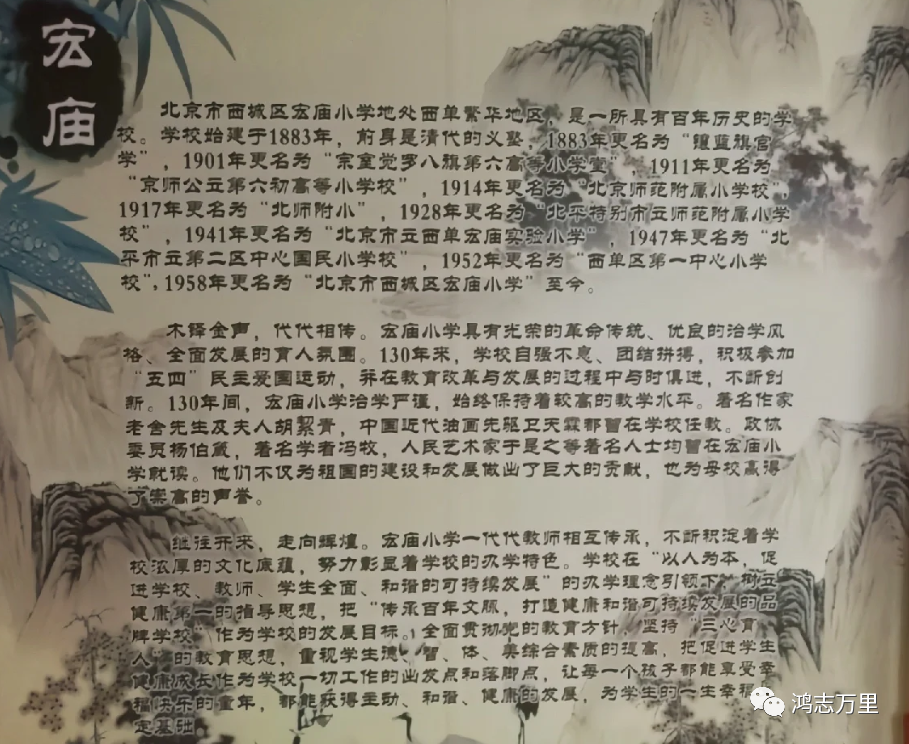 宏庙
北京市西城区宏庙小学地处西单繁华地区，是一所具有百年历史的学
校。学校始建于1883年，前身是清代的义塾，1883年更名为“镶蓝旗官
学”，1901年更名为“宗室觉罗八旗第六高等小学堂”，1911年更名为
“京师公立第六初高等小学校”，1914年更名为“北京师范附属小学校”，
1917年更名为“北师附小”，1928年更名为“北平特别市立师范附属小学
校”，1941年更名为“北京市立西单宏庙实验小学”，1947年更名为“北
平市立第二区中心国民小学校”，1952年更名为“西单区第一中心小学
校”，1958年更名为“北京市西城区宏庙小学”至今。
木铎金声，代代相传。宏庙小学具有光荣的革命传统、优良的治学风
格、全面发展的育人氛围。130年来，学校自强不息、团结拼搏，积极参加
“五四”民主爱国运动，并在教育改革与发展的过程中与时俱进，不断创
新。130年间，宏庙小学治学严谨，始终保持着较高的教学水平。著名作家
老舍先生及夫人胡絜青，中国近代油画先驱卫天霖都曾在学校任教。政协
委员杨伯箴，著名学者冯牧，人民艺术家于是之等著名人士均曾在宏庙小
学就读。他们不仅为祖国的建设和发展做出了巨大的贡献，也为母校赢得
了崇高的声誉。
继往开来，走向辉煌。宏庙小学一代代教师相互传承，不断积淀着学
校浓厚的文化底蕴，努力彰显着学校的办学特色。学校在“以人为本，促
进学校、教师、学生全面、和谐的可持续发展”的办学理念引领下，树立
健康第一的指导思想，把“传承百年文脉，打造健康和谐可持续发展的品
牌学校”作为学校的发展目标。全面贯彻党的教育方针，坚持“三心育
人”的教育思想，重视学生德、智、体、美综合素质的提高，把促进学生
健康成长作为学校一切工作的出发点和落脚点，让每一个孩子都能享受幸
福快乐的童年，都能获得主动、和谐、健康的发展，为学生的一生幸福
定基础。
鸿志万里